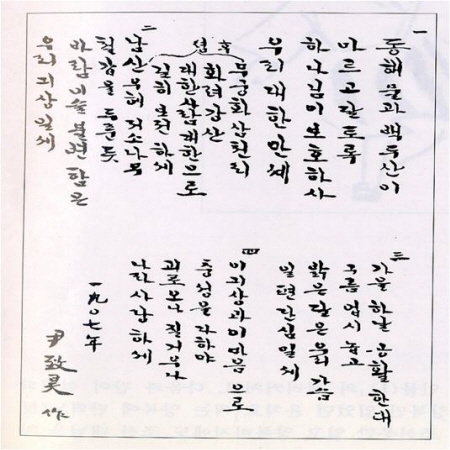 一
동해물과백두산이
마르고달토록
하나님이보호하사
우리대한만세
후렴
무궁화삼천리
화려강산
대한사람대한으로
길히보전하세
二
남산우헤저소나무
철갑을두른듯
바람이슬불변함은
우리긔상일세
三
가을하날공활한대
구름업시놉고
밝은달은우리가슴
일편단심일세
四
이긔상과이마음으로
충성을다하야
괴로오나질거우나
나라사랑하세
一九〇七年
尹致昊 作